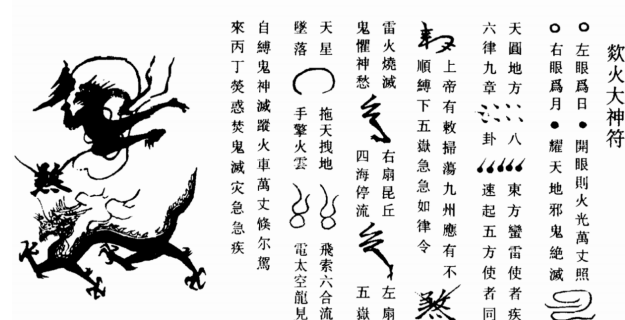 欻火大神符
左眼爲日 開眼則火光萬丈照
右眼爲月 耀天地邪鬼絶滅
天圓地方 八 東方蠻雷使者疾
六律九章 卦 速起五方使者同
上帝有敕掃蕩九州應有不
順縛下五嶽急急如律令 煞
雷火燒滅 右扇昆丘 左扇
鬼懼神愁 四海停流 五嶽
天星 拖天拽地 飛索六合流
墜落 手擎火雲 電太空龍見
自縛鬼神滅蹤火車萬丈倏尔駕
來丙丁熒惑焚鬼滅灾急急疾
煞